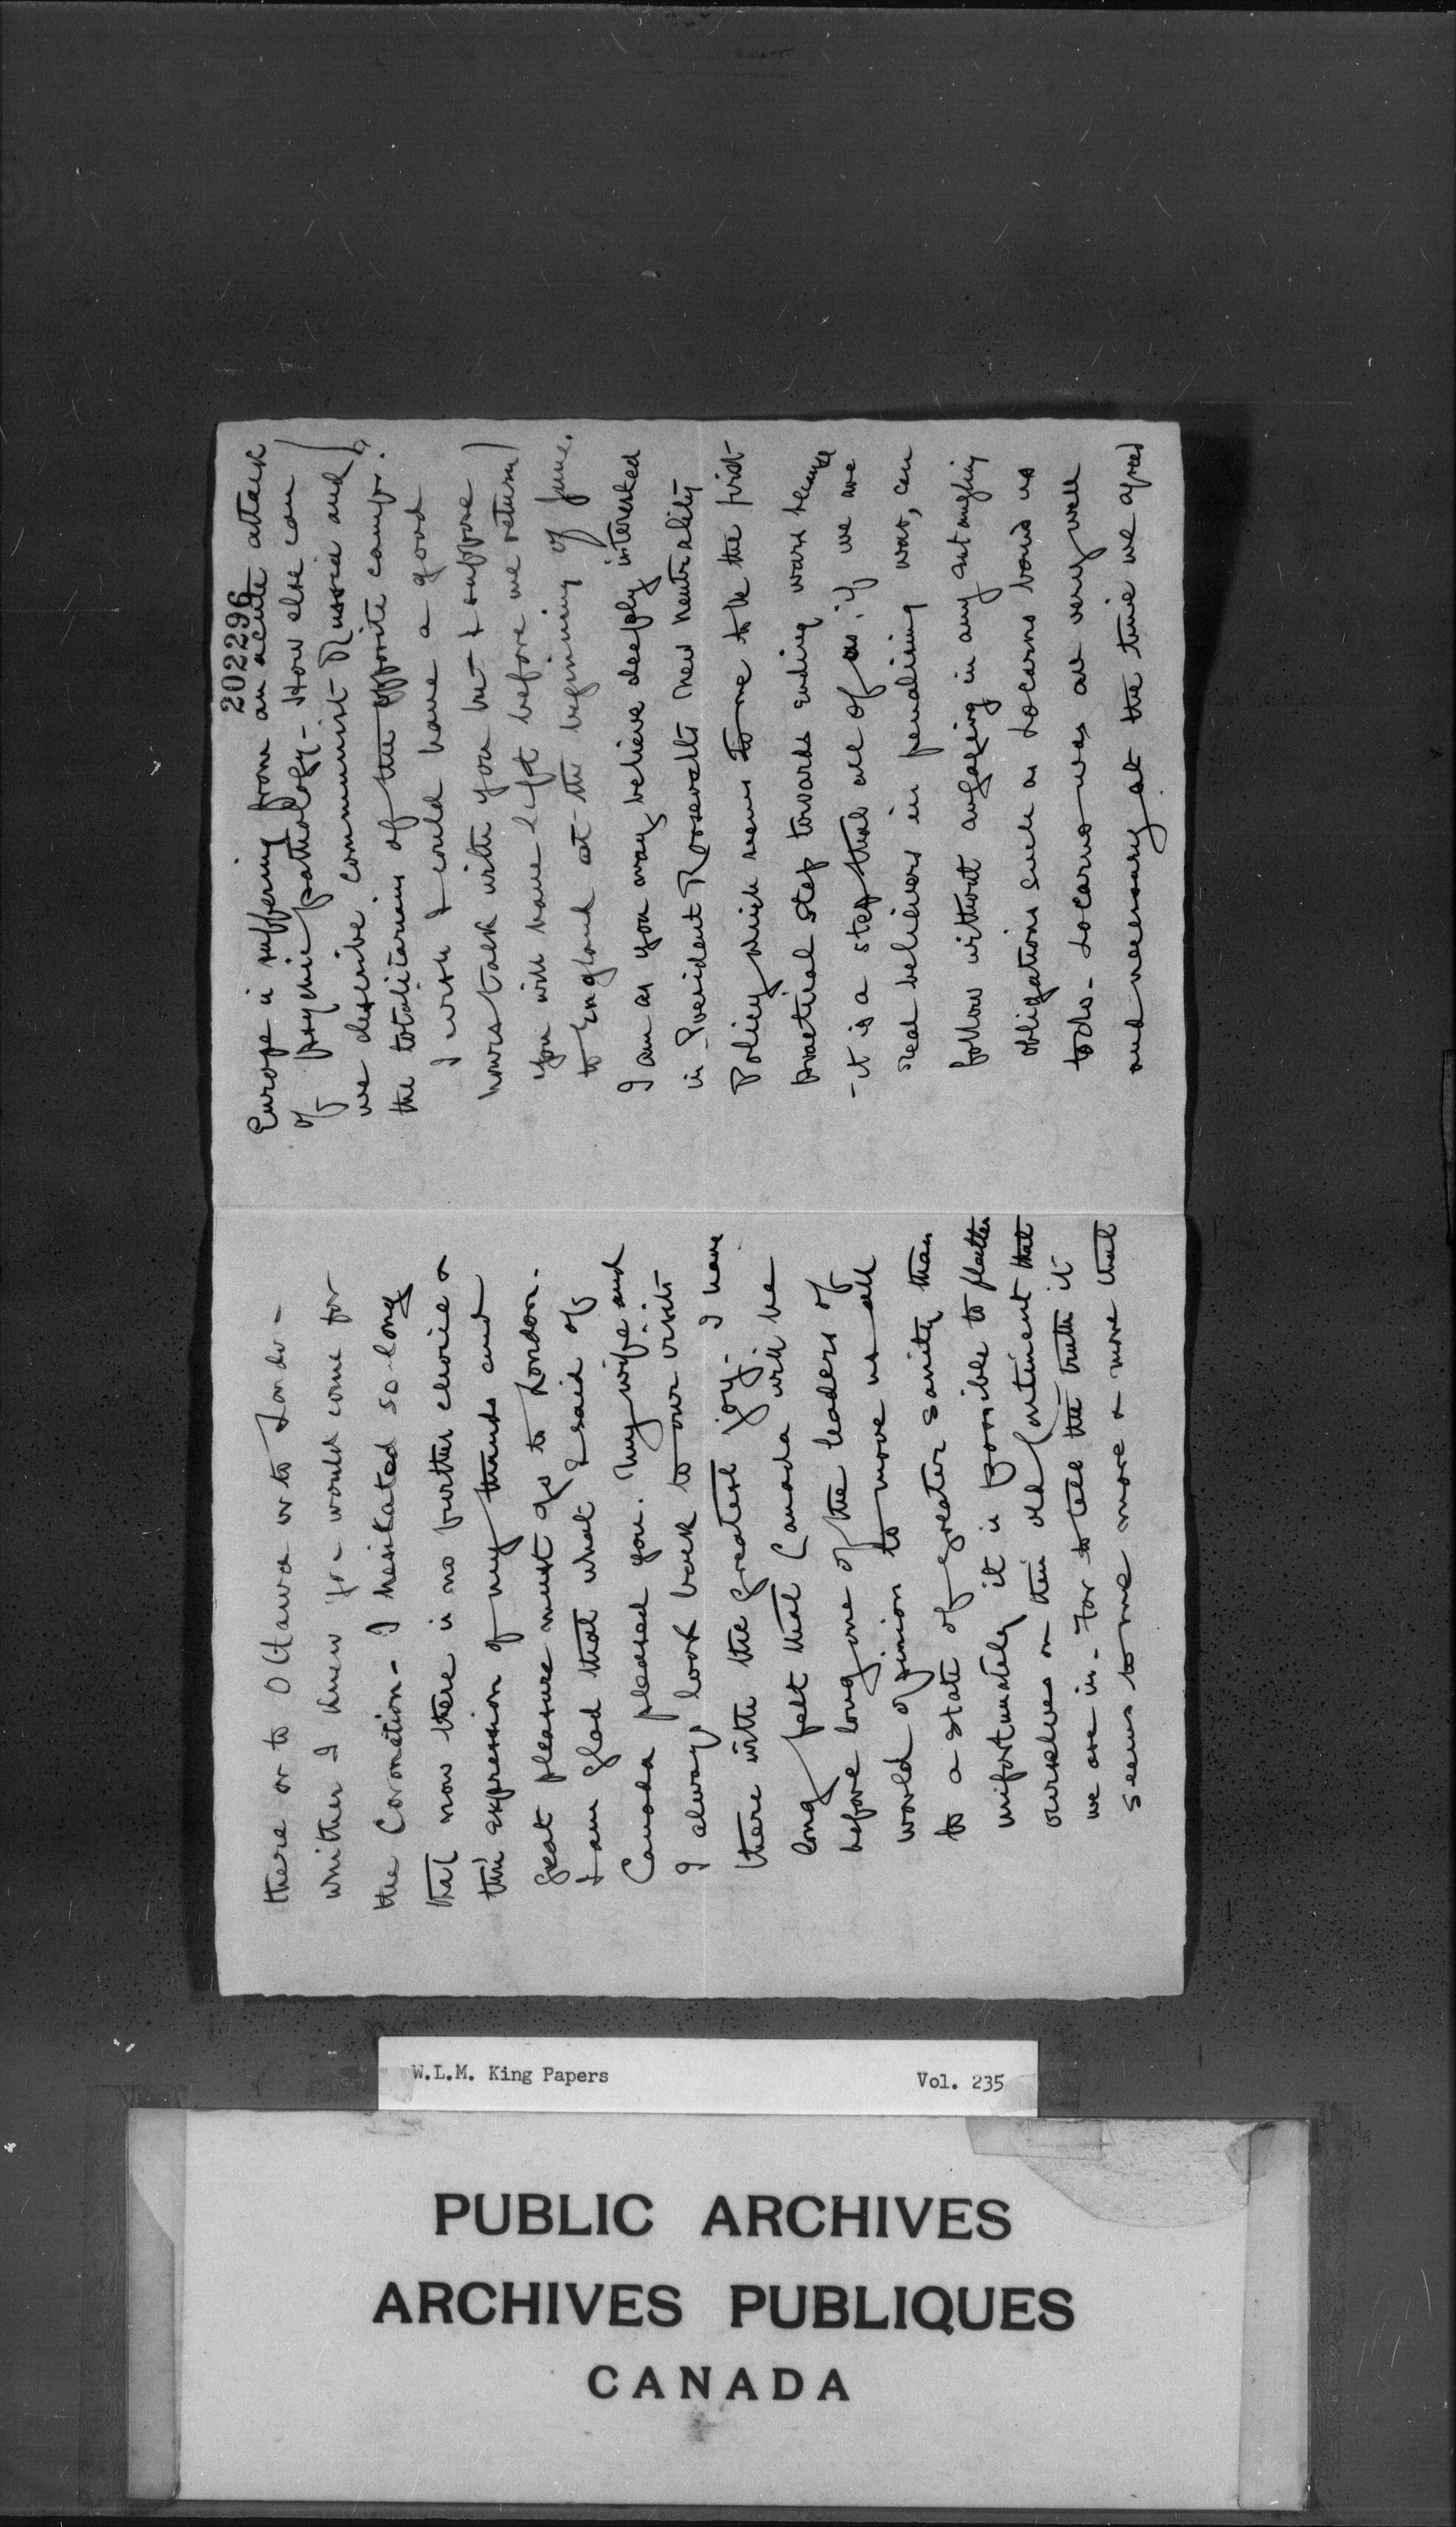 there or to Ottawa or to London –
whither I knew you would come for
the Coronation – I hesitated so long
that now there is no further choice &
this expression of my thanks and
great pleasure must go to London.
I am glad that what I said of
Canada pleased you. My wife and
I always look back to our visits
there with the greatest joy. I have
long felt that Canada will be
before long one of the leaders of
world opinion to move us all
to a state of greater sanity than
unfortunately it is possible to flatter
ourselves on this old Continent that
we are in – For to tell the truth it
seems to me more & more that
202296
Europe is suffering from an acute attack
of psychic pathology – How else can
we describe communist Russia and
the totalitarians of the opposite camp?
I wish I could have a good
hours talk with you but I suppose
you will have left before we return
to England at the beginning of June.
I am as you may believe deeply interested
in President Roosevelts new neutrality
Policy which seems to me to be the first
practical step towards ending wars because
– it is a step that all of us, if we are
real believers in penalising war, can
follow without engaging in any entangling
obligations such as Locarno bound us
to do – Locarno was all very well
and necessary at the time we agreed
W.L.M. King Papers Vol. 235
PUBLIC ARCHIVES
ARCHIVES PUBLIQUES
CANADA